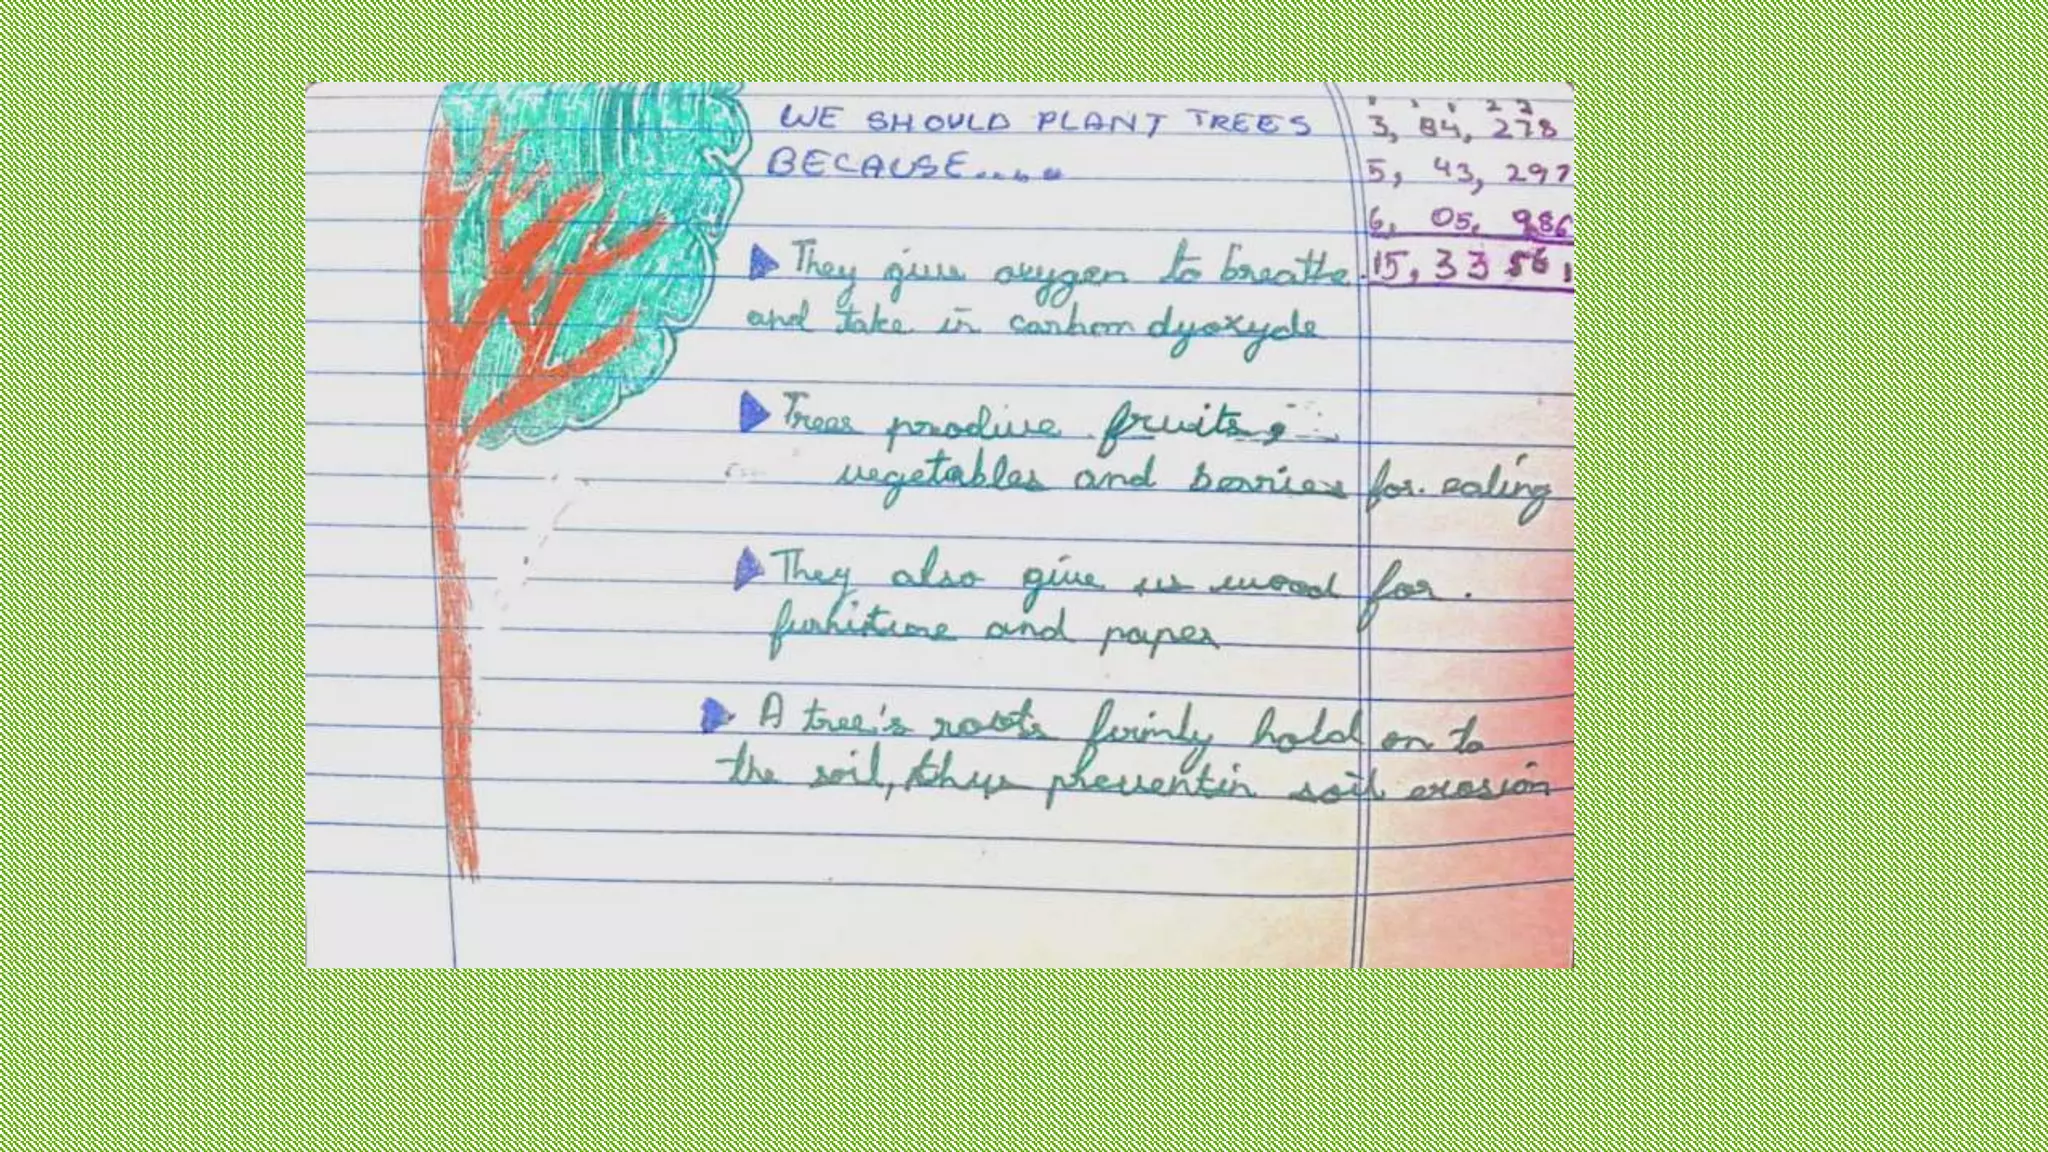 WE SHOULD PLANT TREES
BECAUSE.....
They give oxygen to breathe
and take in carbon dyoxyde
Trees produce fruits,
vegetables and berries for eating
They also give us wood for
furniture and paper
A tree's roots firmly hold on to
the soil, thus preventin soil erosion
3, 84, 278
5, 43, 297
6, 05, 986
15, 33 561